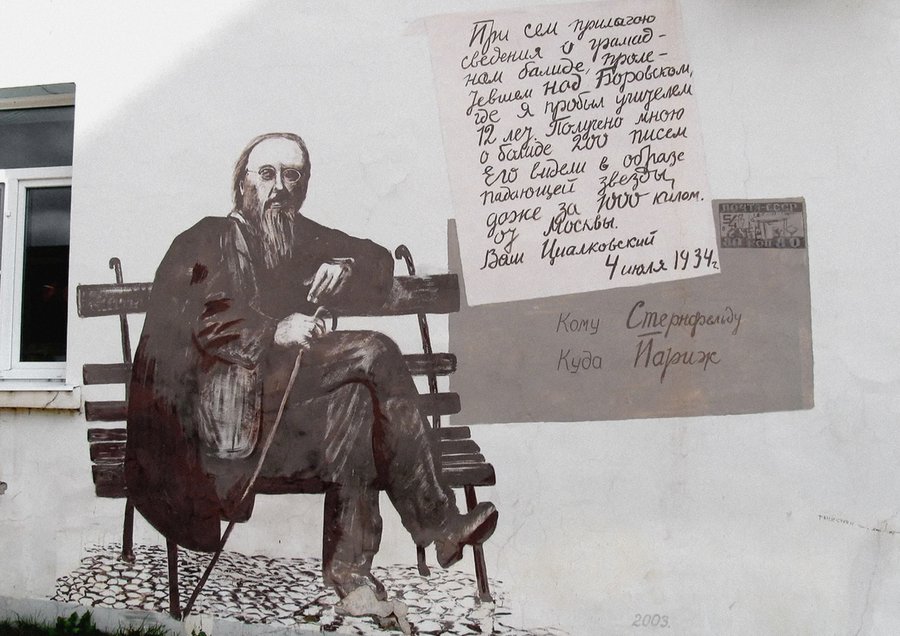 При сем прилагаю
сведения о громад-
нам балиде, проле-
тевшем над Боровском,
где я пробыл учителем
12 лет. Получено мною
о балиде 200 писем
Его видели в образе
падающей звезды,
даже за 1000 килом.
от Москвы.
Ваш Циалковский
4 июля 1934г.
ПОЧТА-СССР
Кому Стернфельду
Куда Париж
2003.